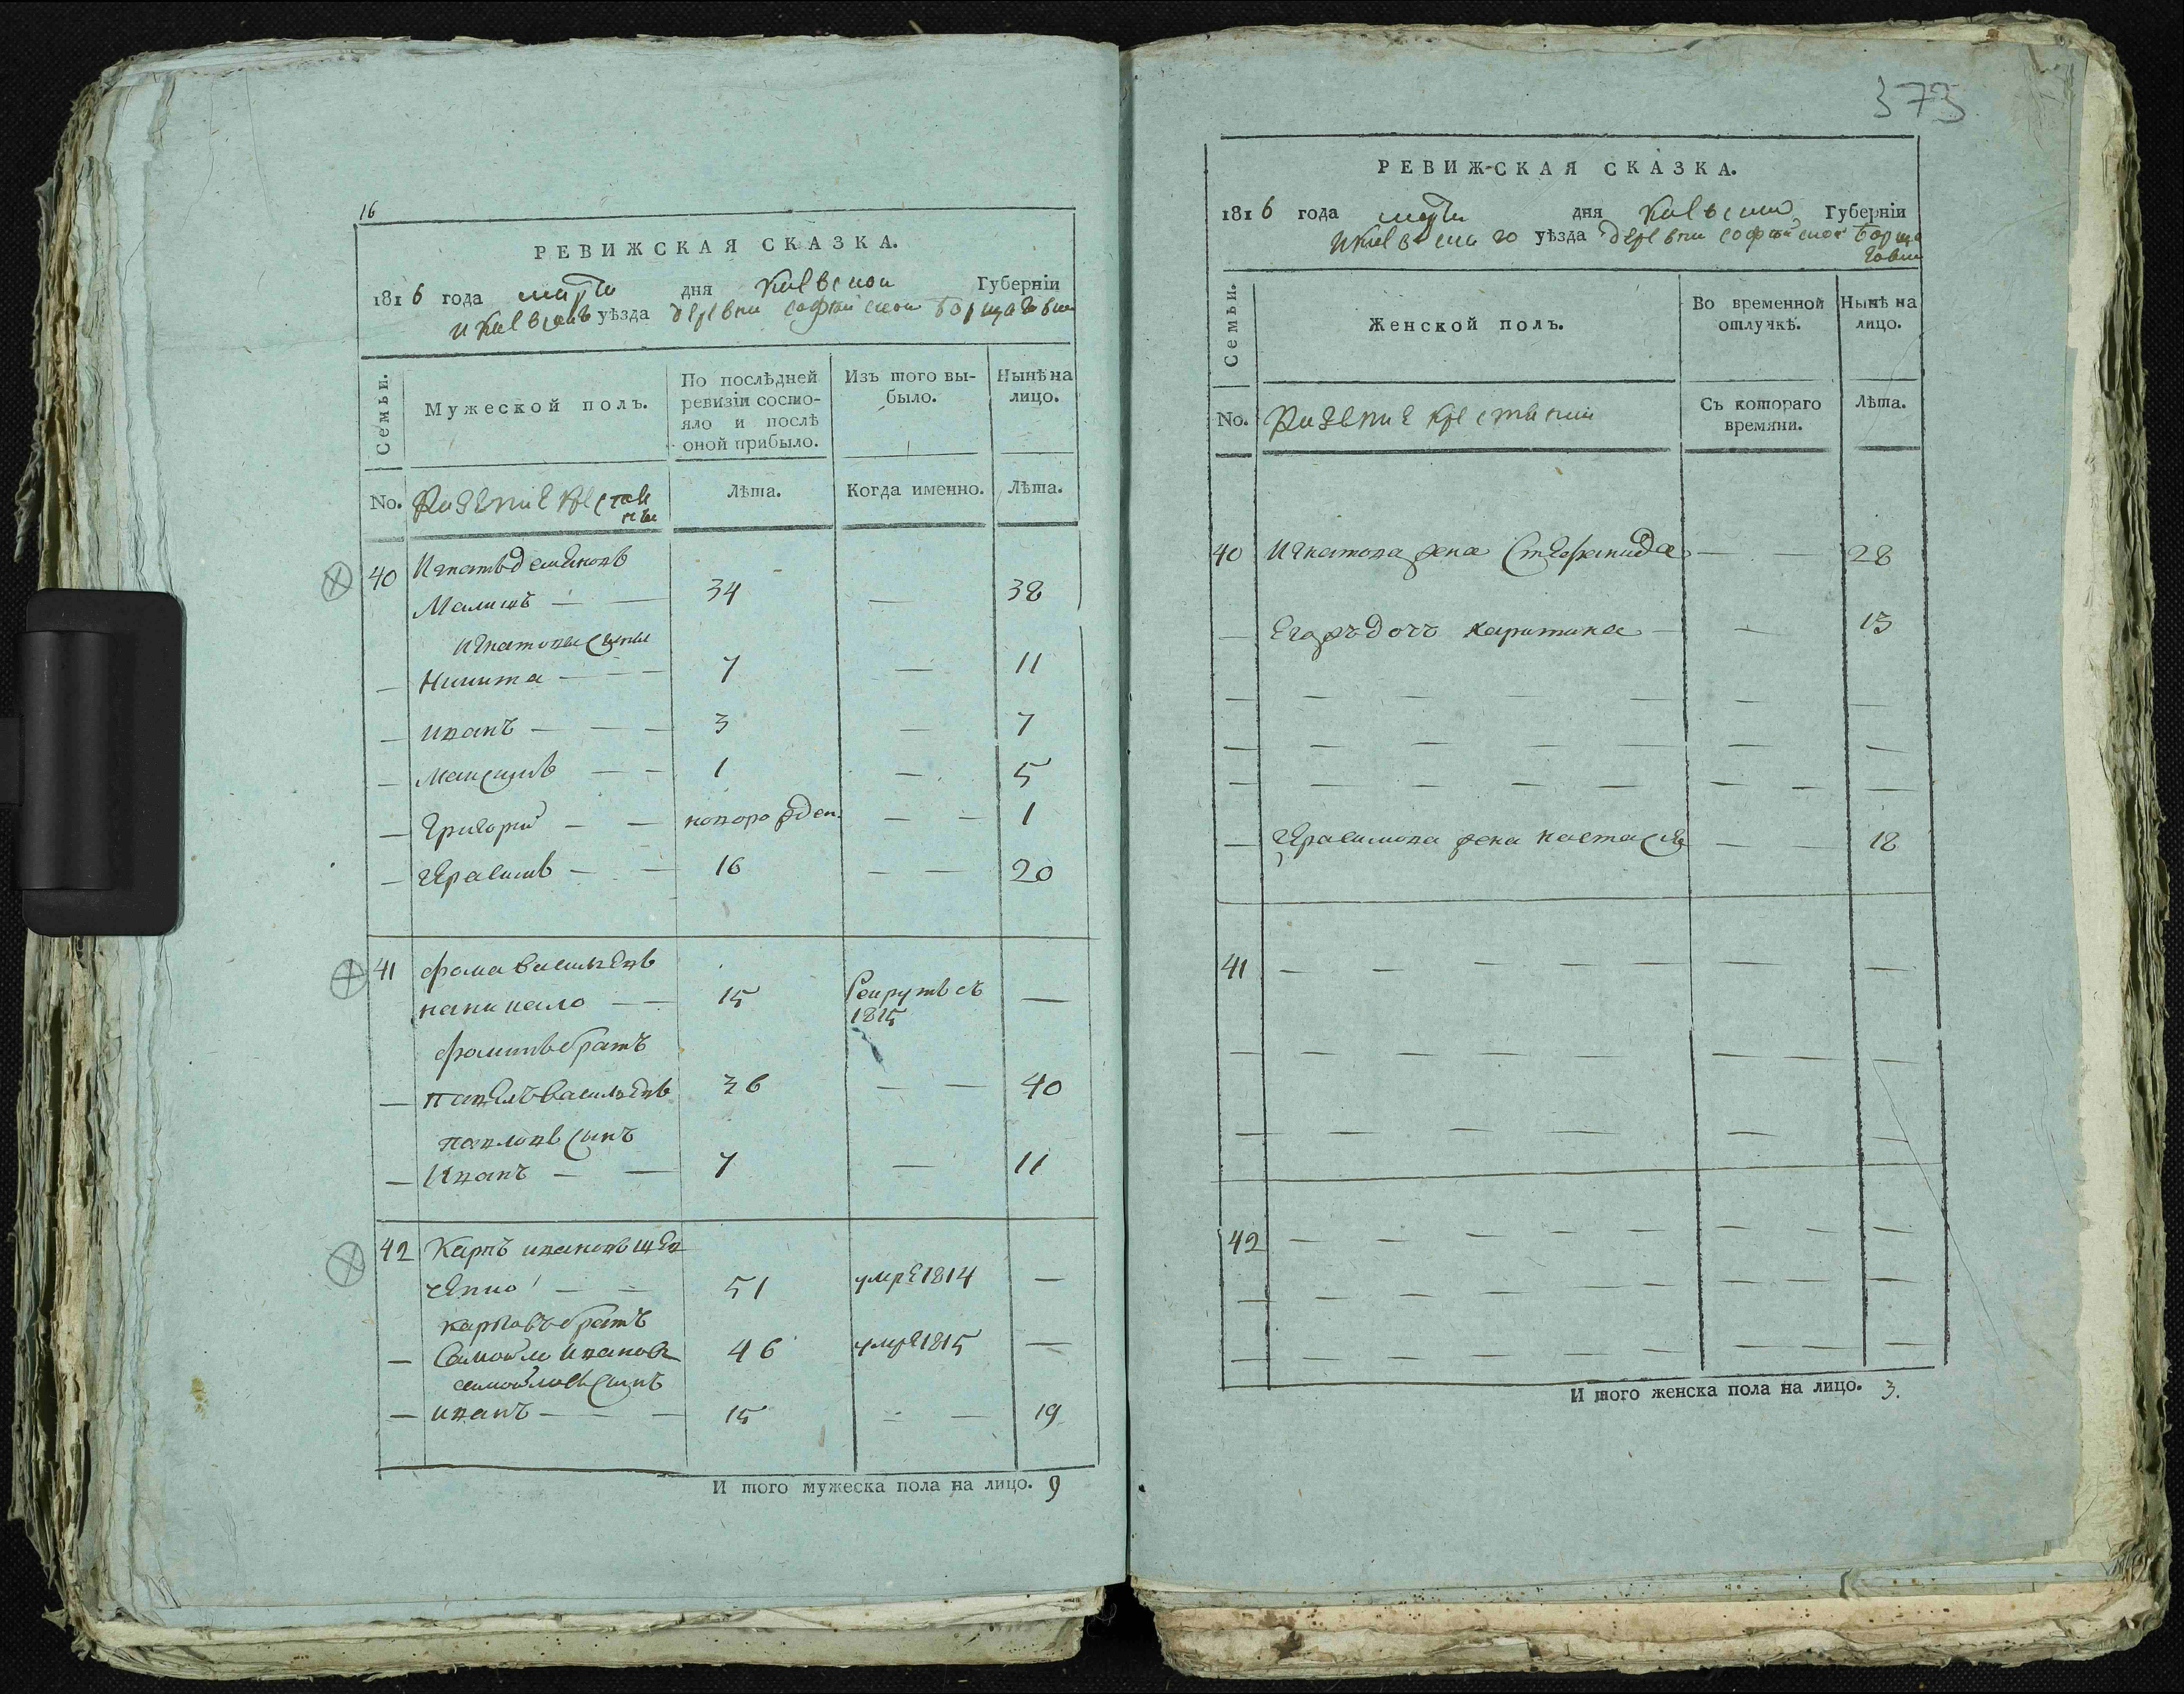 16
РЕВИЖСКАЯ СКАЗКА.
1816 года марта дня Киевской Губерніи
и Киевскаго уѣзда деревни софійской Борщаговки
Семьи.
Мужеской полъ.
По послѣдней ревизіи состояло и послѣ оной прибыло.
Изъ того выбыло.
Нынѣ на лицо.
No. Казенние крестяне
Лѣта.
Когда именно.
Лѣта.
40 Игнатъ
Малишъ — — 34 — 38
игнатовы сыны
— Никита — — — 7 — 11
— иванъ — — — 3 — 7
— максимъ — — 1 — 5
— Григорий — — новорожден. — — 1
— герасимъ — — 16 — — 20
41 фома василевъ
— — 15 Рекрутъ съ 1815 —
фоминъ братъ
— павелъ василевъ 36 — — 40
павловъ сынъ
— Иванъ — — 7 — 11
42 Карпъ ивановъ
— — 51 умре 1814 —
карповъ братъ
— Самойло иванов 46 умре 1815 —
самойловъ сынъ
— иванъ — — — 15 — — 19
И того мужеска пола на лицо. 9
373
РЕВИЖСКАЯ СКАЗКА.
1816 года марта дня Киевской Губерніи
и Киевскаго уѣзда деревни софийской Борщаговки
Семьи.
Женской полъ.
Во временной отлучкѣ.
Нынѣ на лицо.
No. Казенние крестянки
Съ котораго времяни.
Лѣта.
40 Игнатова жена Стефанида — — 28
— Егожъ дочъ харитина — — 13
— — — — — — —
— — — — — — —
— — — — — — — —
— герасимова жена настася — — 18
41 — — — — — — —
— — — — — — — —
— — — — — — —
42 — — — — — — — —
— — — — — — — — —
— — — — — — — — —
И того женска пола на лицо. 3.